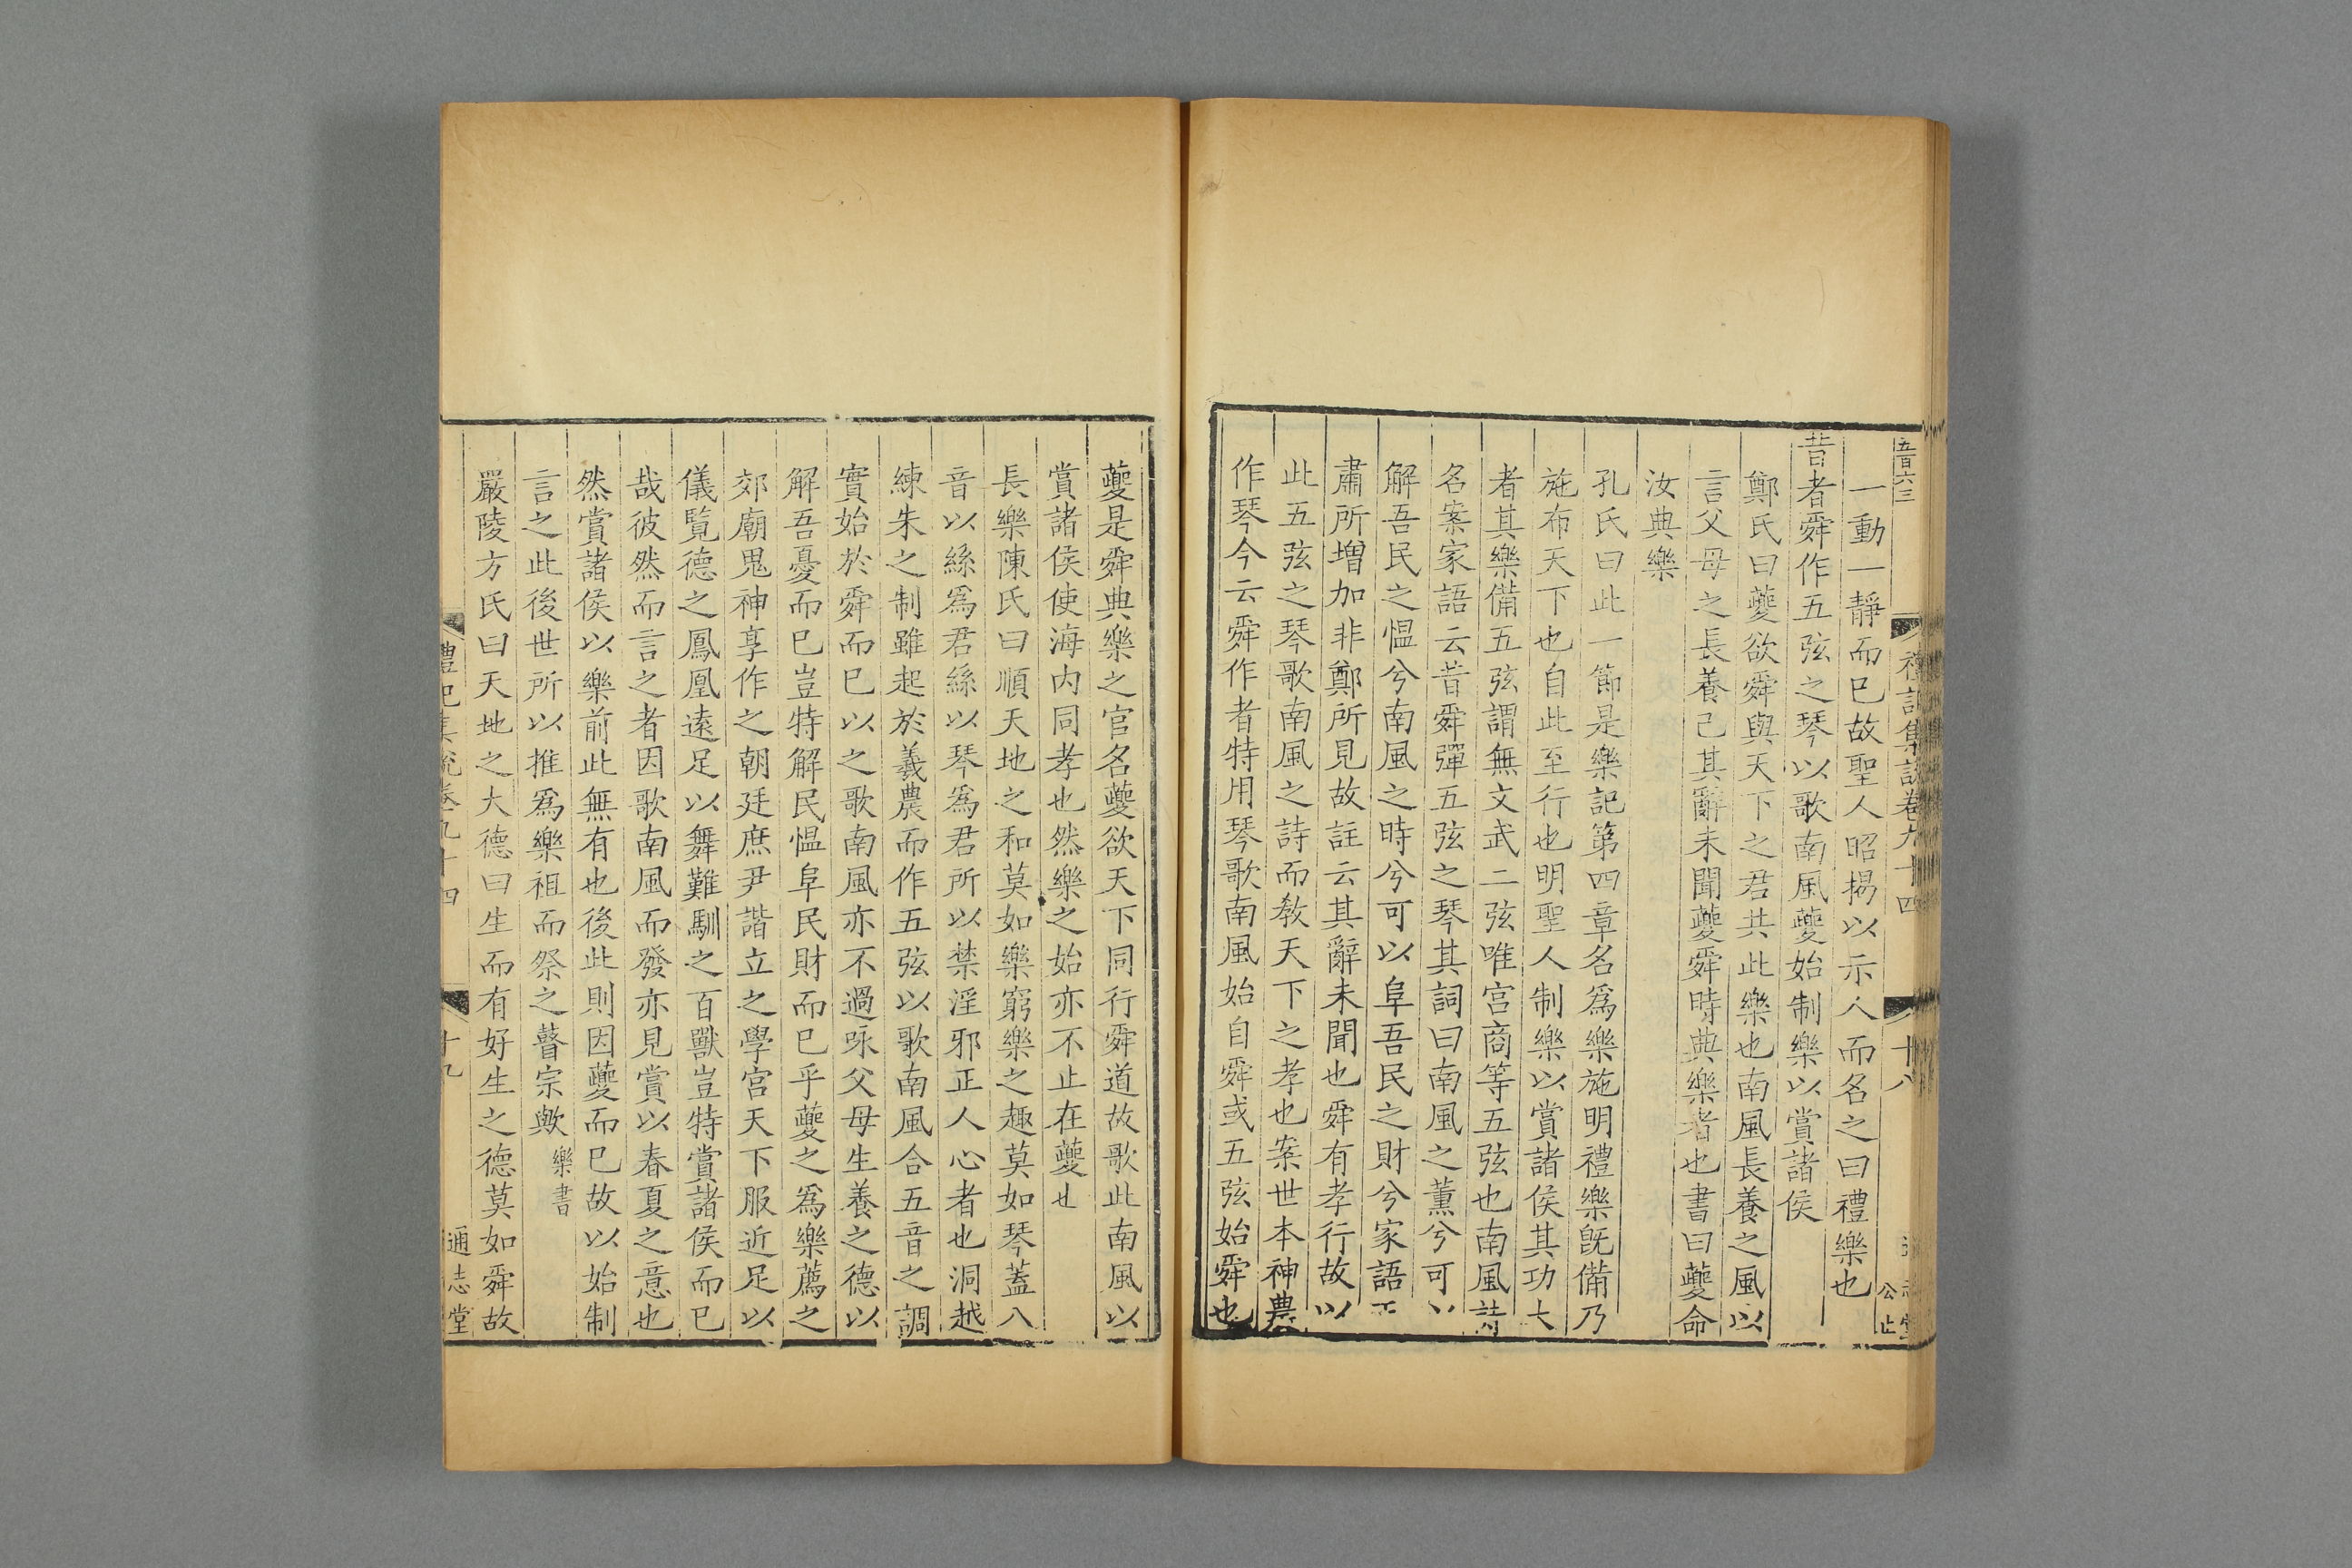 五百六三
禮記集說卷九十四 十八
公止
一動一靜而已故聖人昭揭以示人而名之曰禮樂也
昔者舜作五弦之琴以歌南風夔始制樂以賞諸侯
鄭氏曰夔欲舜與天下之君共此樂也南風長養之風以
言父母之長養己其辭未聞夔舜時典樂者也書曰夔命
汝典樂
孔氏曰此一節是樂記第四章名爲樂施明禮樂旣備乃
施布天下也自此至行也明聖人制樂以賞諸侯其功大
者其樂備五弦謂無文武二弦唯宫商等五弦也南風詩
名案家語云昔舜彈五弦之琴其詞曰南風之薰兮可以
解吾民之愠兮南風之時兮可以阜吾民之財兮家語王
肅所增加非鄭所見故註云其辭未聞也舜有孝行故以
此五弦之琴歌南風之詩而敎天下之孝也案世本神農
作琴今云舜作者特用琴歌南風始自舜或五弦始舜也
夔是舜典樂之官名夔欲天下同行舜道故歌此南風以
賞諸侯使海内同孝也然樂之始亦不止在夔也
長樂陳氏曰順天地之和莫如樂窮樂之趣莫如琴蓋八
音以絲爲君絲以琴爲君所以禁淫邪正人心者也洞越
練朱之制雖起於羲農而作五弦以歌南風合五音之調
實始於舜而已以之歌南風亦不過咏父母生養之德以
解吾憂而已豈特解民愠阜民財而已乎夔之爲樂薦之
郊廟鬼神享作之朝廷庶尹諧立之學宫天下服近足以
儀覽德之鳳凰遠足以舞難馴之百獸豈特賞諸侯而已
哉彼然而言之者因歌南風而發亦見賞以春夏之意也
然賞諸侯以樂前此無有也後此則因夔而已故以始制
言之此後世所以推爲樂祖而祭之瞽宗歟 樂書
嚴陵方氏曰天地之大德曰生而有好生之德莫如舜故
禮記集說卷九十四 十九 通志堂